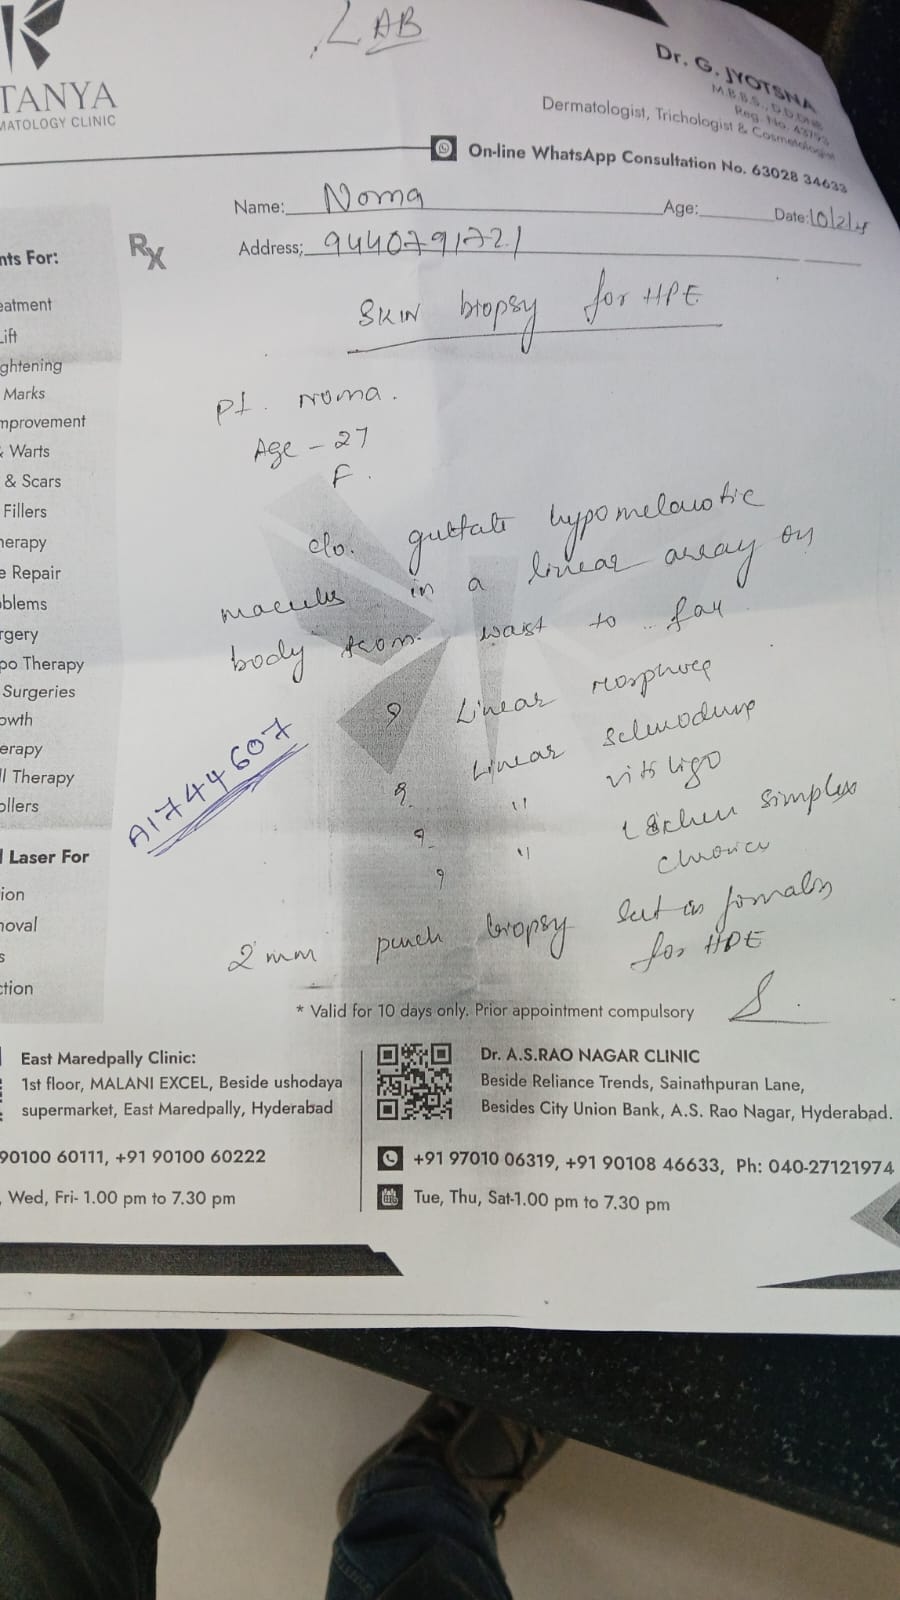 LAB
TANYA
MATOLOGY CLINIC
Dr. G. JYOTSNA
M.B.B.S., D.D,DNB
Reg. No. 43793
Dermatologist, Trichologist & Cosmetologist
On-line WhatsApp Consultation No. 63028 34633
Name: Noma Age: Date:10/2/
Address: 9440791721
Rx
nts For:
eatment
Lift
ghtening
Marks
mprovement
& Warts
& Scars
Fillers
herapy
e Repair
oblems
rgery
po Therapy
Surgeries
owth
erapy
ll Therapy
ollers
l Laser For
ion
noval
s
ction
SKIN biopsy for HPE
Pt. Noma.
Age - 27
F.
c/o. guttate hypomelanotic
macules in a linear array on
body from waist to
? Linear morphoea
? Linear
? " vitiligo
? " Lichen simplex
chronicus
A1744607
2 mm punch biopsy in formalin
for HPE
* Valid for 10 days only. Prior appointment compulsory
East Maredpally Clinic:
1st floor, MALANI EXCEL, Beside ushodaya
supermarket, East Maredpally, Hyderabad
90100 60111, +91 90100 60222
, Wed, Fri- 1.00 pm to 7.30 pm
Dr. A.S.RAO NAGAR CLINIC
Beside Reliance Trends, Sainathpuran Lane,
Besides City Union Bank, A.S. Rao Nagar, Hyderabad.
+91 97010 06319, +91 90108 46633, Ph: 040-27121974
Tue, Thu, Sat-1.00 pm to 7.30 pm